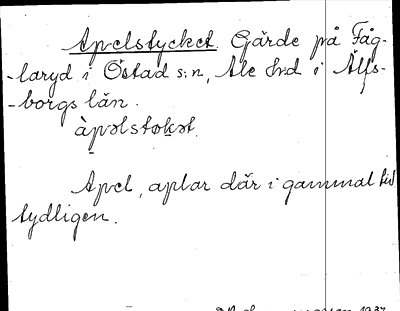 Apelstycket. Gärde på Fåg-
-laryd i Östad s:n, Ale hrd i Älfs-
-borgs län.
àpəlstək̮ət.
Apel, aplar där i gammal tid
tydligen.
1937